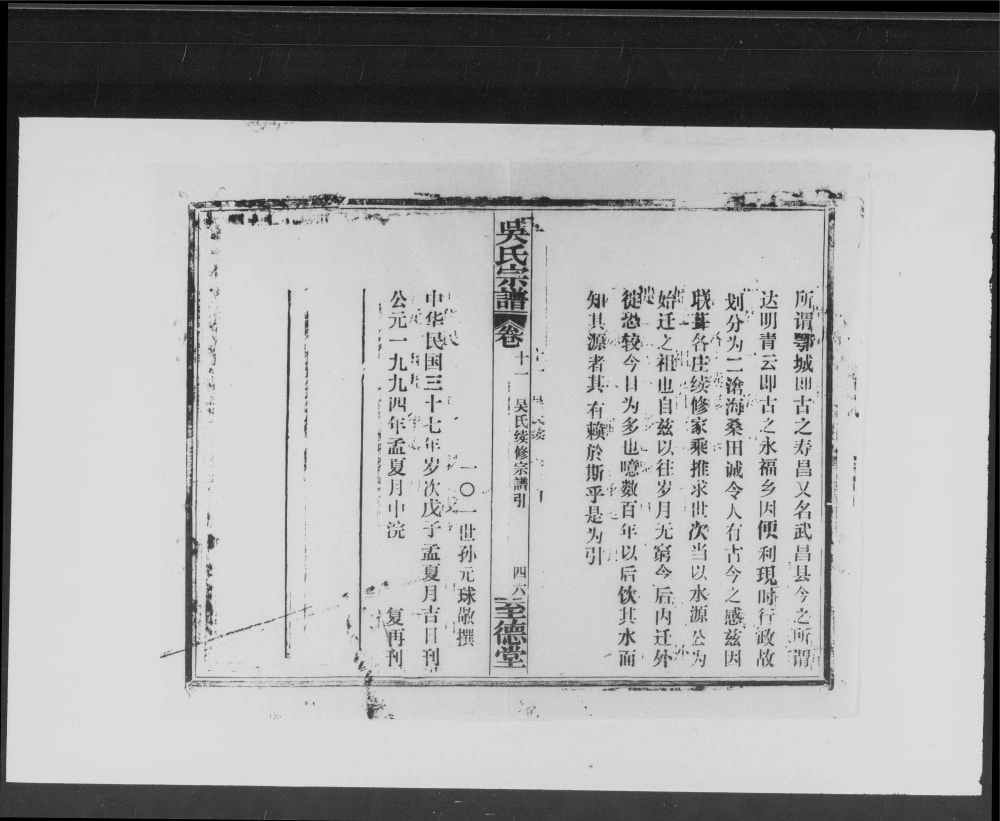 所谓鄂城即古之寿昌又名武昌县今之所谓
达明青云即古之永福乡因便利現时行政故
划分为二滄海桑田诚令人有古今之感兹因
联葑各庄续修家乘推求世次当以水源公为
始迁之祖也自兹以往岁月无窮今后内迁外
徙恐较今日为多也噫数百年以后饮其水而
知其源者其有赖於斯乎是为引
吳氏宗譜 卷十一 吴氏续修宗譜引 四六 至德堂
一〇一世孙元球敬撰
中华民国三十七年岁次戊子孟夏月吉日刊
公元一九九四年孟夏月中浣 复再刊